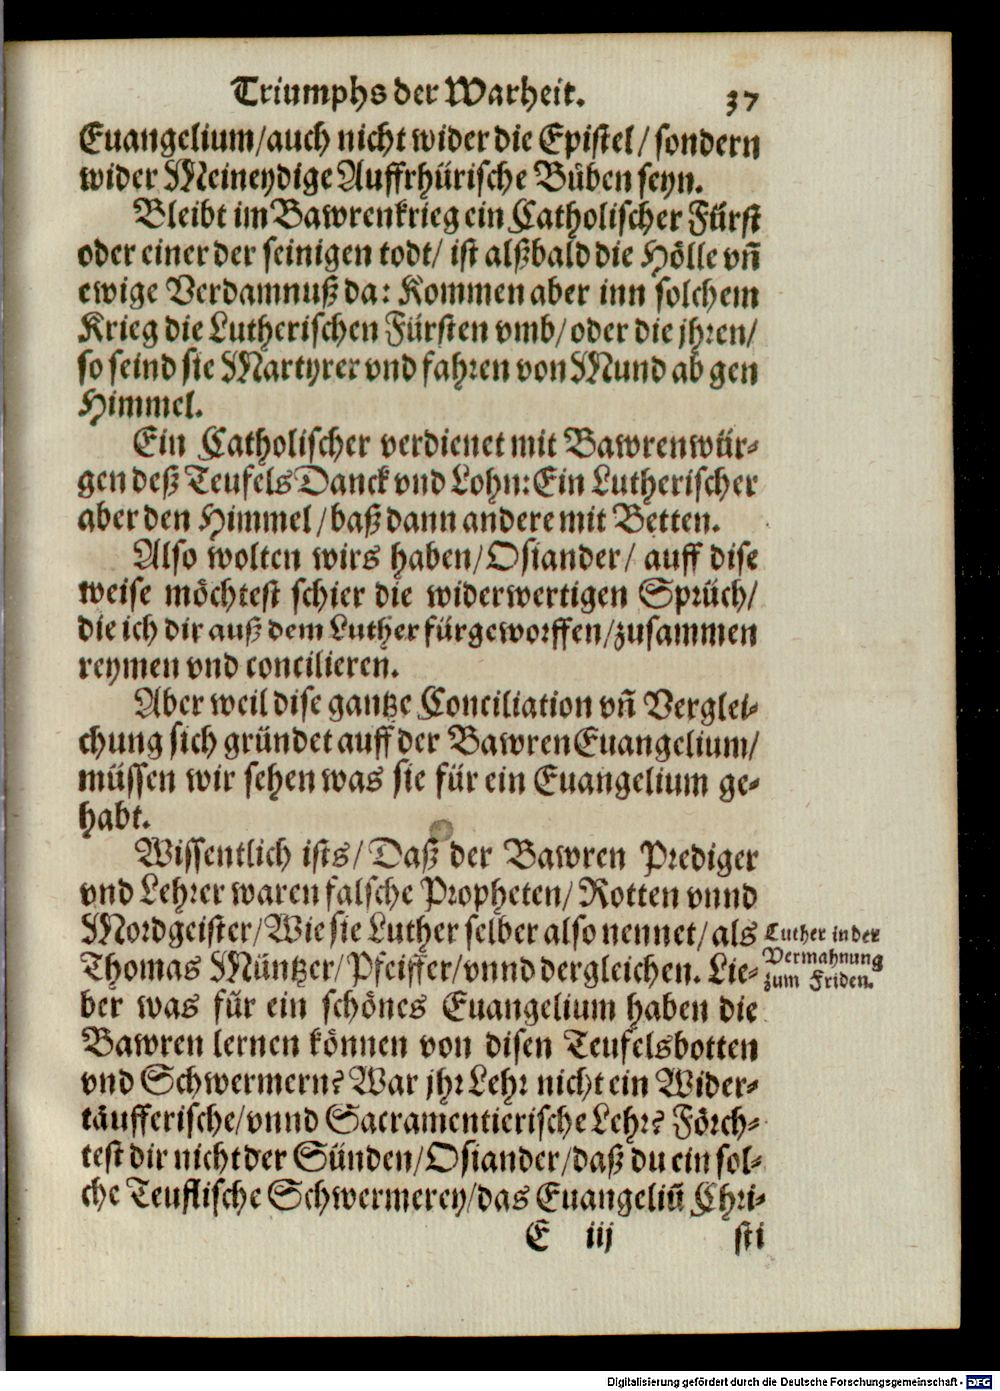 Triumphs der Warheit. 37
Euangelium/auch nicht wider die Epistel/ sondern
wider Meineydige Auffrhürische Büben seyn.
Bleibt im Bawrenkrieg ein Catholischer Fürst
oder einer der seinigen todt/ ist alßbald die Hölle vñ
ewige Verdamnuß da: Kommen aber inn solchem
Krieg die Lutherischen Fürsten vmb/ oder die jhren/
so seind sie Martyrer vnd fahren von Mund ab gen
Himmel.
Ein Catholischer verdienet mit Bawrenwür-
gen deß Teufels Danck vnd Lohn: Ein Lutherischer
aber den Himmel/ baß dann andere mit Betten.
Also wolten wirs haben/ Osiander/ auff dise
weise möchtest schier die widerwertigen Sprüch/
die ich dir auß dem Luther fürgeworffen/ zusammen
reymen vnd concilieren.
Aber weil dise gantze Conciliation vñ Verglei-
chung sich gründet auff der Bawren Euangelium/
müssen wir sehen was sie für ein Euangelium ge-
habt.
Wissentlich ists/ Daß der Bawren Prediger
vnd Lehrer waren falsche Propheten/ Rotten vnnd
Mordgeister/ Wie sie Luther selber also nennet/ als
Thomas Müntzer/ Pfeiffer/ vnnd dergleichen. Lie-
ber was für ein schönes Euangelium haben die
Bawren lernen können von disen Teufelsbotten
vnd Schwermern? War jhr Lehr nicht ein Wider-
täufferische/ vnnd Sacramentierische Lehr? Förch-
test dir nicht der Sünden/ Osiander/ daß du ein sol-
che Teuflische Schwermerey/ das Euangeliū Chri-
E iij sti
Luther in der
Vermahnung
zum Friden.
Digitalisierung gefördert durch die Deutsche Forschungsgemeinschaft - DFG